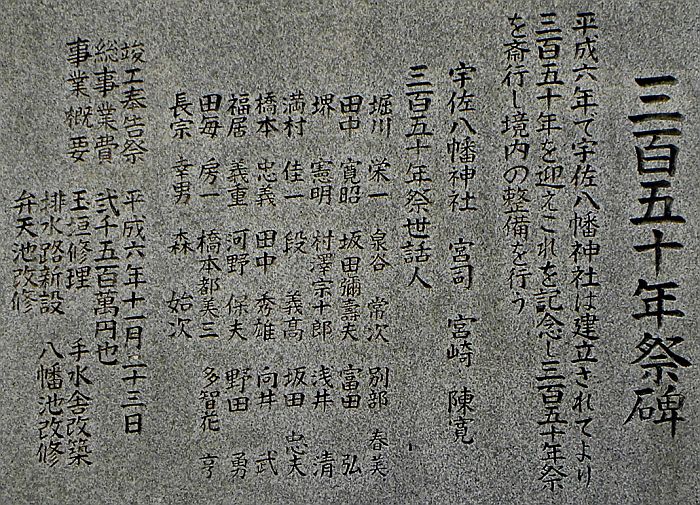 三百五十年祭碑
平成六年で宇佐八幡神社は建立されてより
三百五十年を迎えこれを記念し三百五十年祭
を斎行し境内の整備を行う
宇佐八幡神社 宮司 宮崎 陳寛
三百五十年祭世話人
堀川 栄一 泉谷 常次 別部 春美
田中 寛昭 坂田 彌壽夫 富田 弘
堺 憲明 村澤 宗十郎 浅井 清
満村 佳一 段 義高 坂田 忠夫
橋本 忠義 田中 秀雄 向井 武
福居 義重 河野 保夫 野田 勇
田毎 房一 橋本 都美三 多智花 亨
長宗 幸男 森 始次
竣工奉告祭 平成六年十一月二十三日
総事業費 弐千五百萬円也
事業概要 玉垣修理 手水舎改築
排水路新設 八幡池改修
弁天池改修